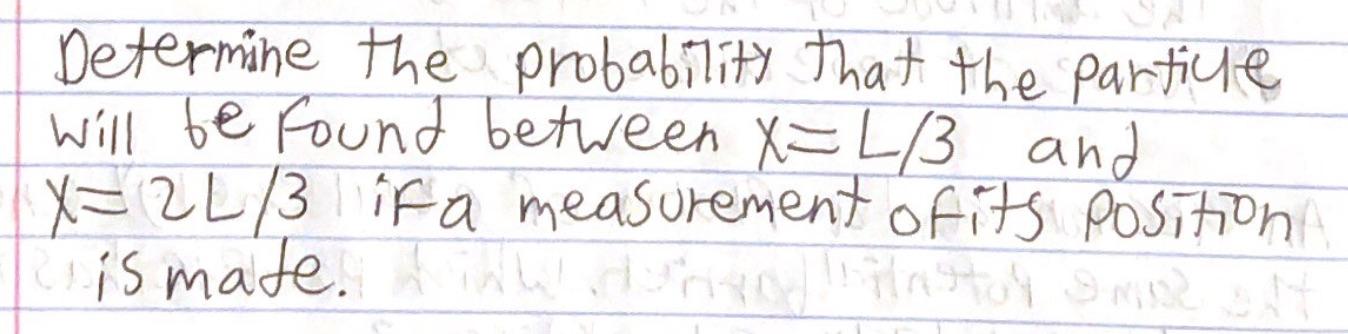 Determine the probability that the particle
will be found between x = L/3 and
x = 2L/3 if a measurement of its position
is made.